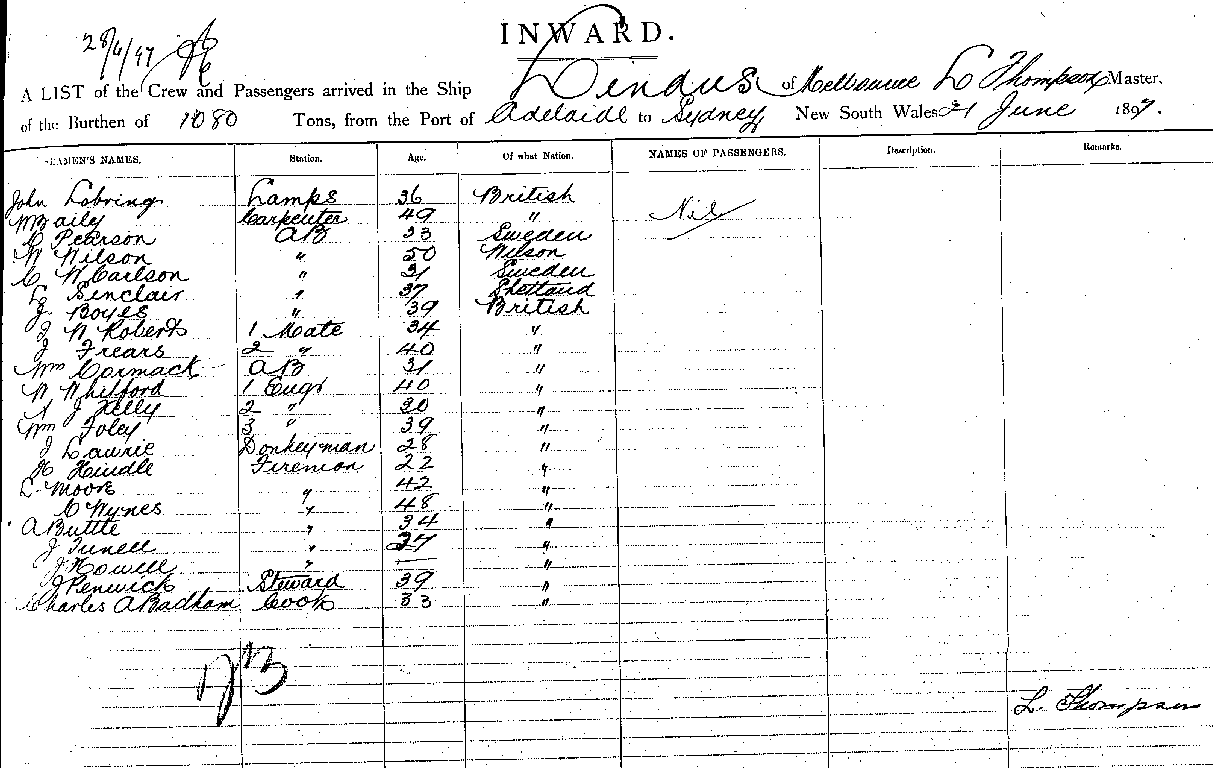 INWARD.
28/6/97
A LIST of the Crew and Passengers arrived in the Ship Dindus of Melbourne L Thompson Master,
of the Burthen of 1080 Tons, from the Port of Adelaide to Sydney, New South Wales 21 June 1897.
SEAMEN'S NAMES. Station. Age. Of what Nation. NAMES OF PASSENGERS. Description. Remarks.
John Lobring Lamps 36 British Nil
Carpenter 49 "
Pearson AB 33 Sweden
N Nilson " 50 Nilson
C W Carlson " 31 Sweden
L Sinclair " 37 Shetland
J Boyes " 39 British
J N Roberts 1 Mate 34 "
J Frears 2 " 40 "
Wm Cormack AB 31 "
W Whifford 1 Engr 40 "
J Kelly 2 " 30 "
Wm Foley 3 " 39 "
J Lawrie Donkeyman 28 "
H Hindle Fireman 22 "
L Moore " 42 "
C Wynes " 48 "
A Buttle " 34 "
J Tunell " 37 "
J Howell " — "
J Penwick Steward 39 "
Charles A Badham Cook 33 "
L. Thompson